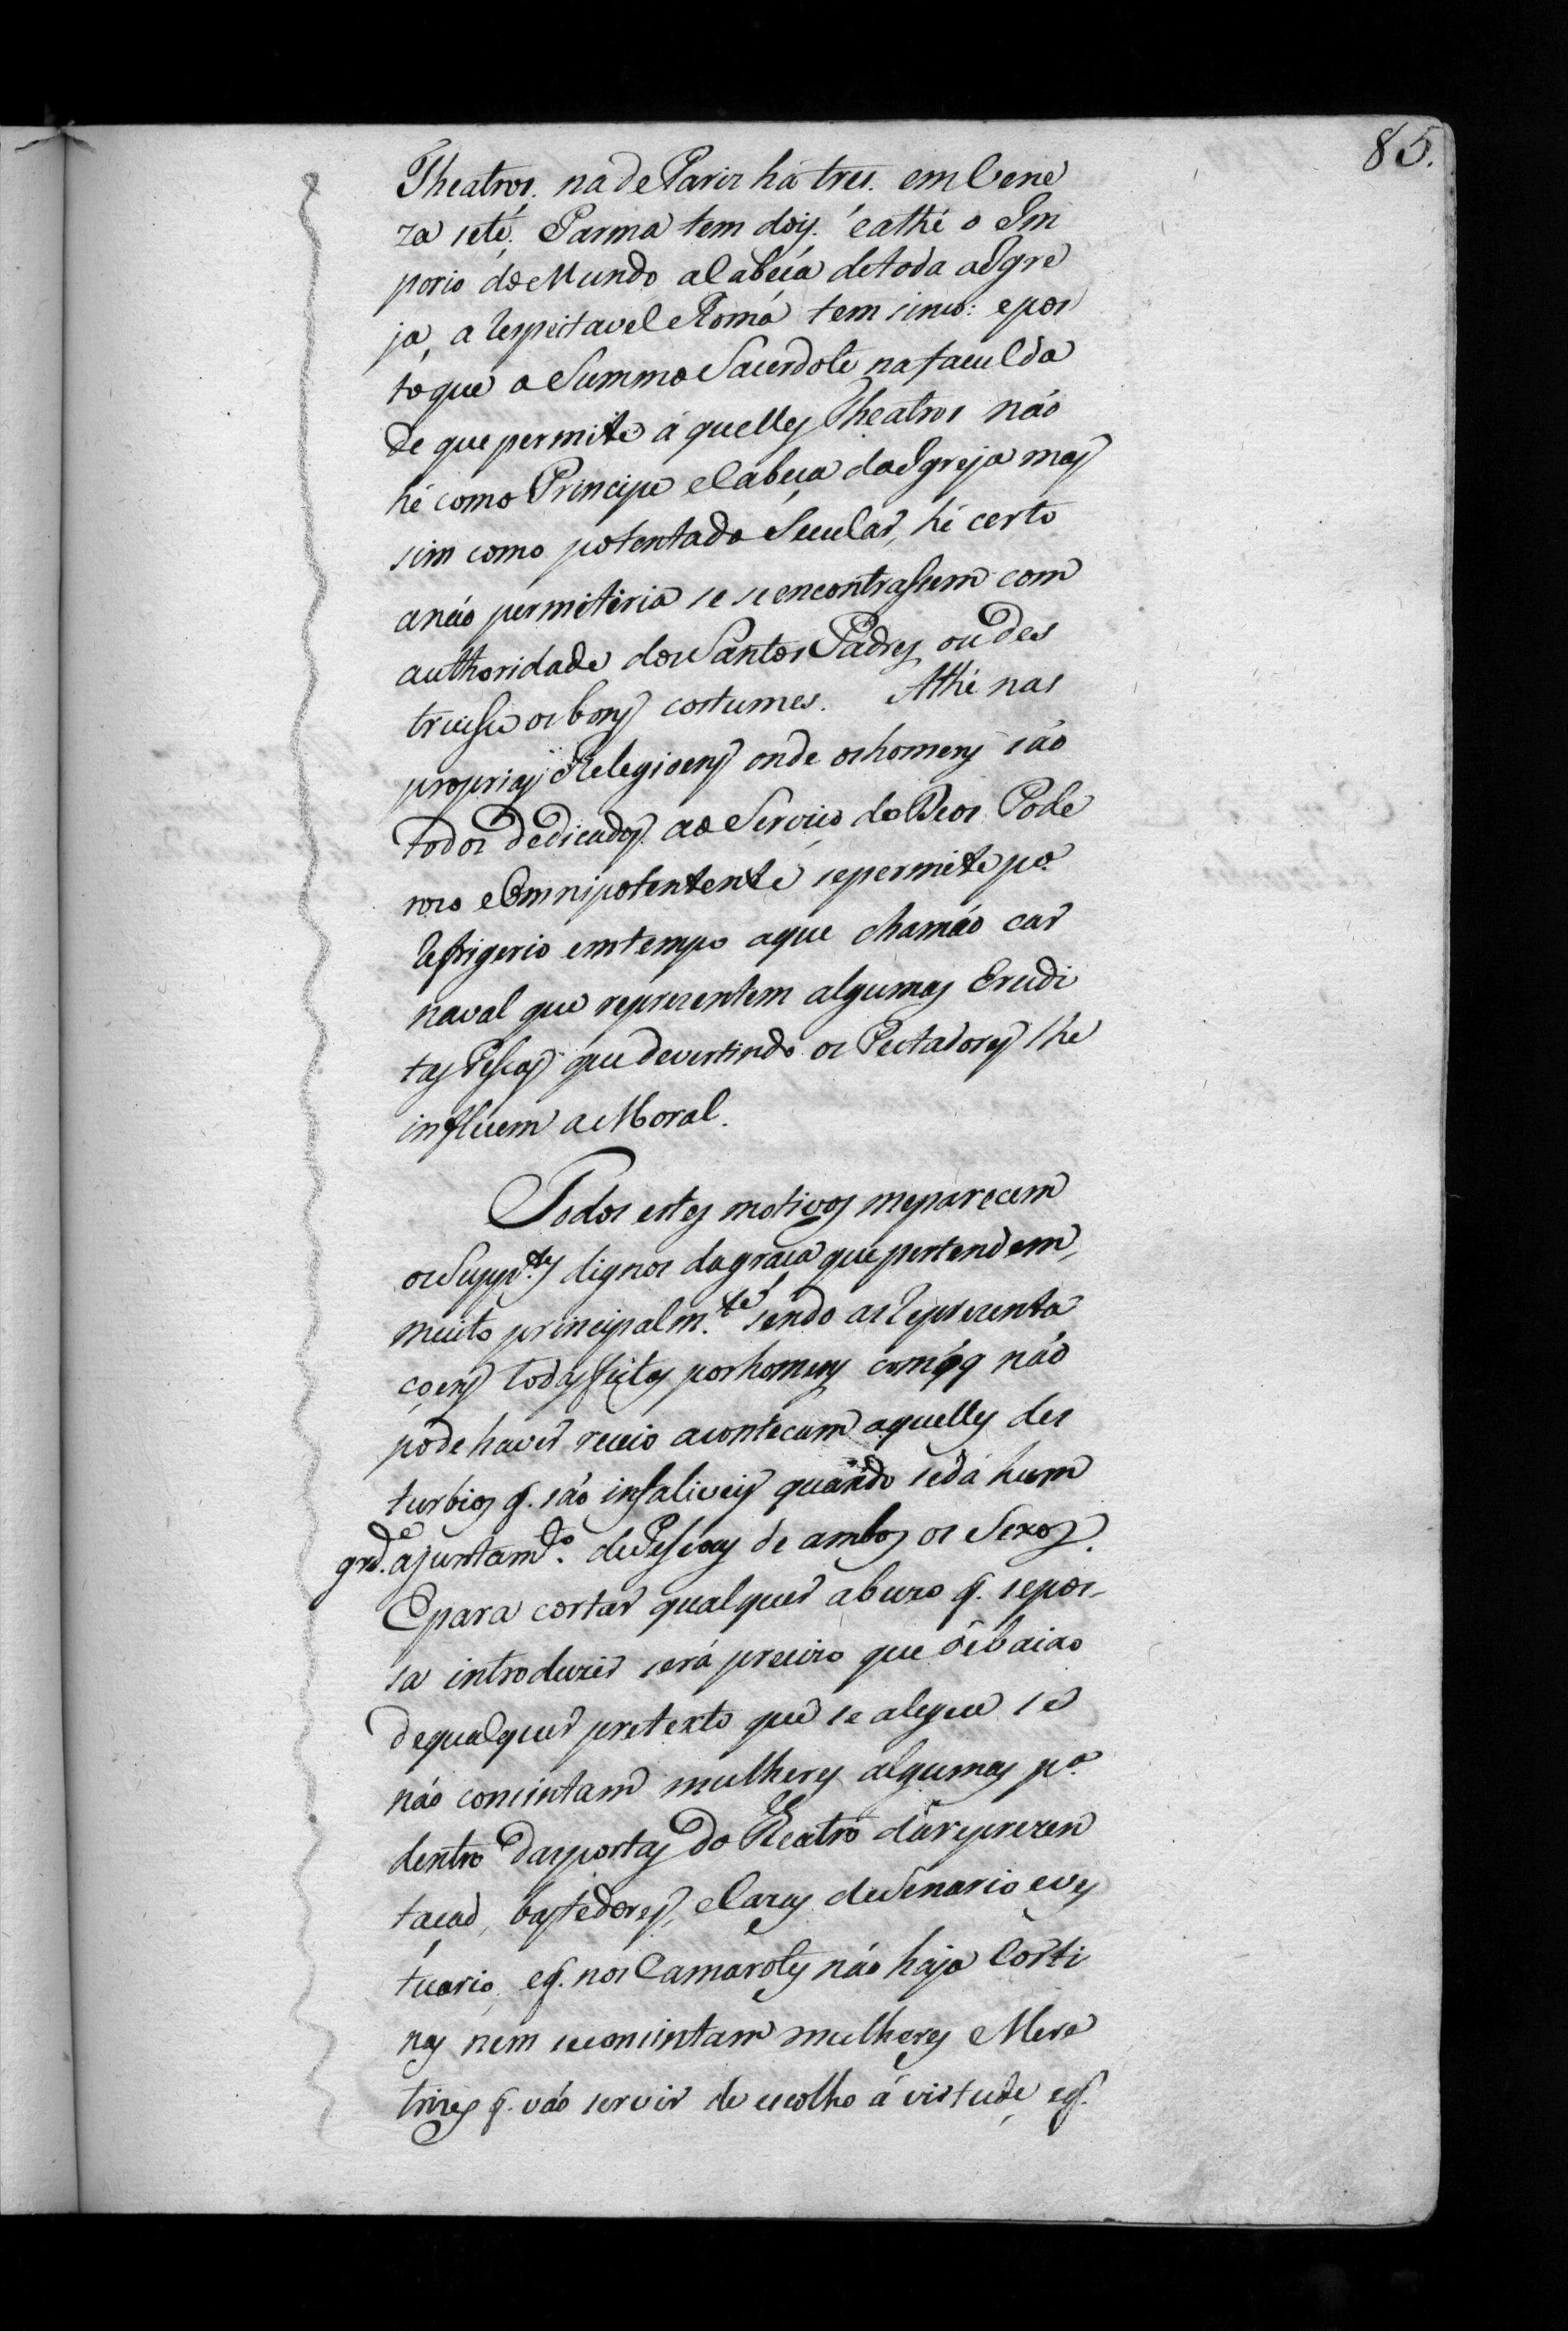 85.
Theatros. na de Pariz há tres. em Vene
za sete. Parma tem dois. e athé o Em
porio do Mundo a Cabeça de toda a Igre
ja, a respeitavel Roma tem sinco: e pos
to que o Summo Sacerdote na faculda
de que permite á quelles Theatros não
hé como Principe e Cabeça da Igreja mas
sim como potentado Secular, hé certo
a não permitiria se se encontrassem com
authoridade dos Santos Padres, ou des
truisse os bons costumes. Athé nas
proprias Relegioens onde os homens são
todos dedicados ao Serviço do Deos Pode
rozo e Omnipotentente se permite p.ª
refrigerio em tempo a que chamão car
naval que reprezentem algumas Erudi
tas Pessas que devertindo os Pectadores lhe
influem a Moral.
Todos estes motivos me parecem
os Supp.tes dignos da graça que pertendem,
muito principalm.te sendo as reprezenta
çoens todas feitas por homens com q q não
póde haver receio aconteçam aquelles des
turbios q. são infaliveis quando se dá hum
grd.e ajuntam.to de Pessoas de ambos os Sexos.
E para cortar qualquer abuzo q. se pos-
sa introduzir será precizo que debaixo
de qualquer pretexto que se alegue se
não concintam mulheres algumas p.ª
dentro das portas do Teatro da reprezen
tação, bastedores, e Cazas de Senario e ves
tuario, e q. nos Camarotes não haja Corti
nas nem se concintam mulheres Mere
trizes q. vão servir de escolho á virtude, e q.